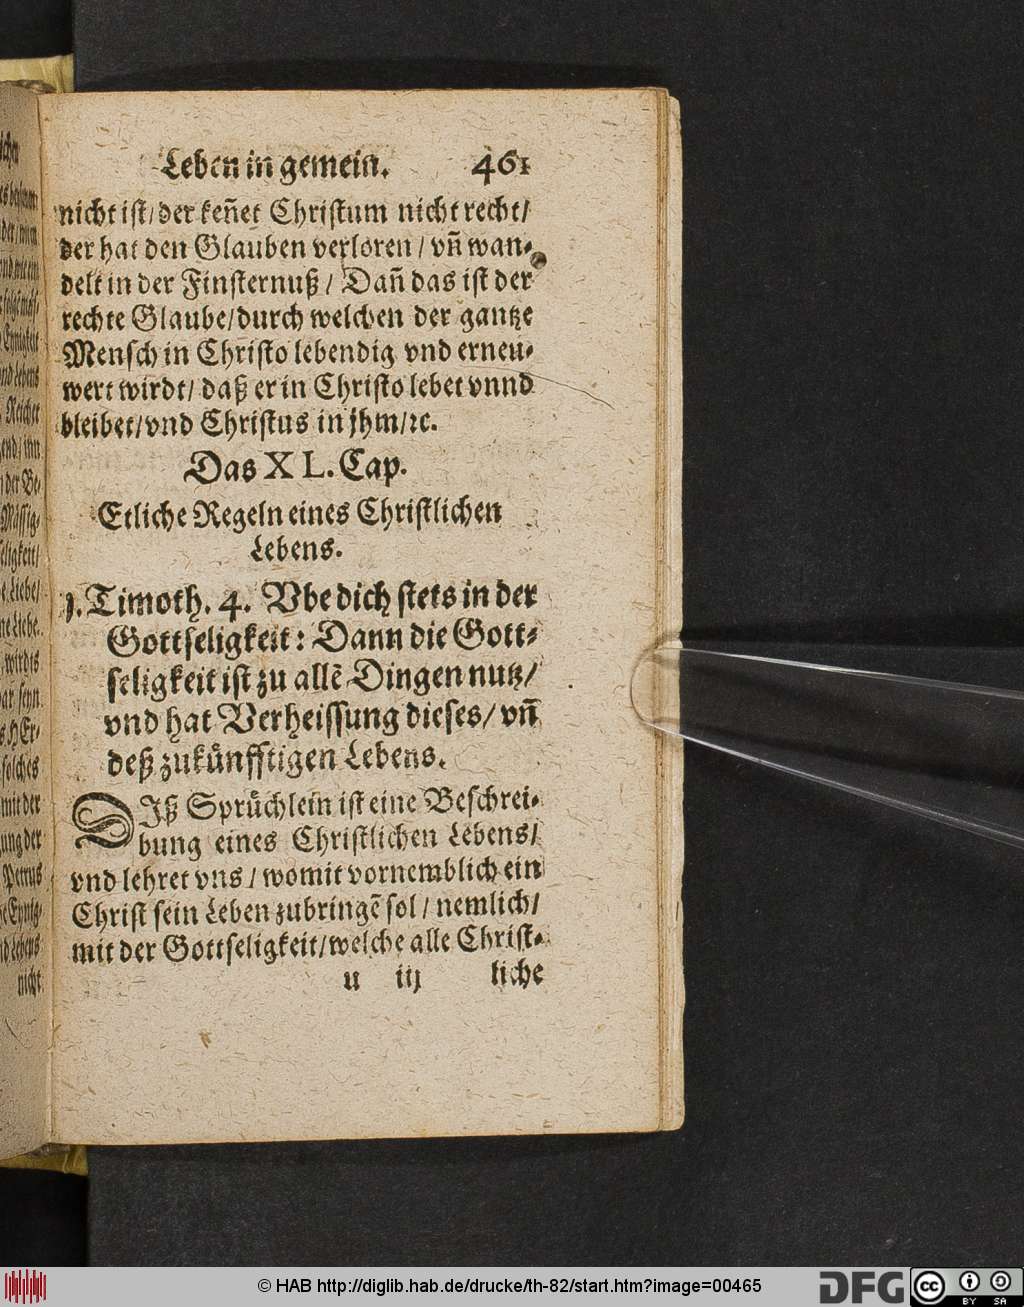 Leben in gemein. 461
nicht ist/ der keñet Christum nicht recht/
der hat den Glauben verloren / vñ wan-
delt in der Finsternuß / Dañ das ist der
rechte Glaube/durch welchen der gantze
Mensch in Christo lebendig vnd erneu-
wert wirdt/ daß er in Christo lebet vnnd
bleibet/vnd Christus in jhm/ꝛc.
Das XL. Cap.
Etliche Regeln eines Christlichen
Lebens.
1. Timoth. 4. Vbe dich stets in der
Gottseligkeit: Dann die Gott-
seligkeit ist zu allẽ Dingen nutz/
vnd hat Verheissung dieses/ vñ
deß zukünfftigen Lebens.
DIß Sprüchlein ist eine Beschrei-
bung eines Christlichen Lebens/
vnd lehret vns / womit vornemblich ein
Christ sein Leben zubringẽ sol / nemlich/
mit der Gottseligkeit/welche alle Christ-
u iij liche
© HAB http://diglib.hab.de/drucke/th-82/start.htm?image=00465
DFG
cc BY SA